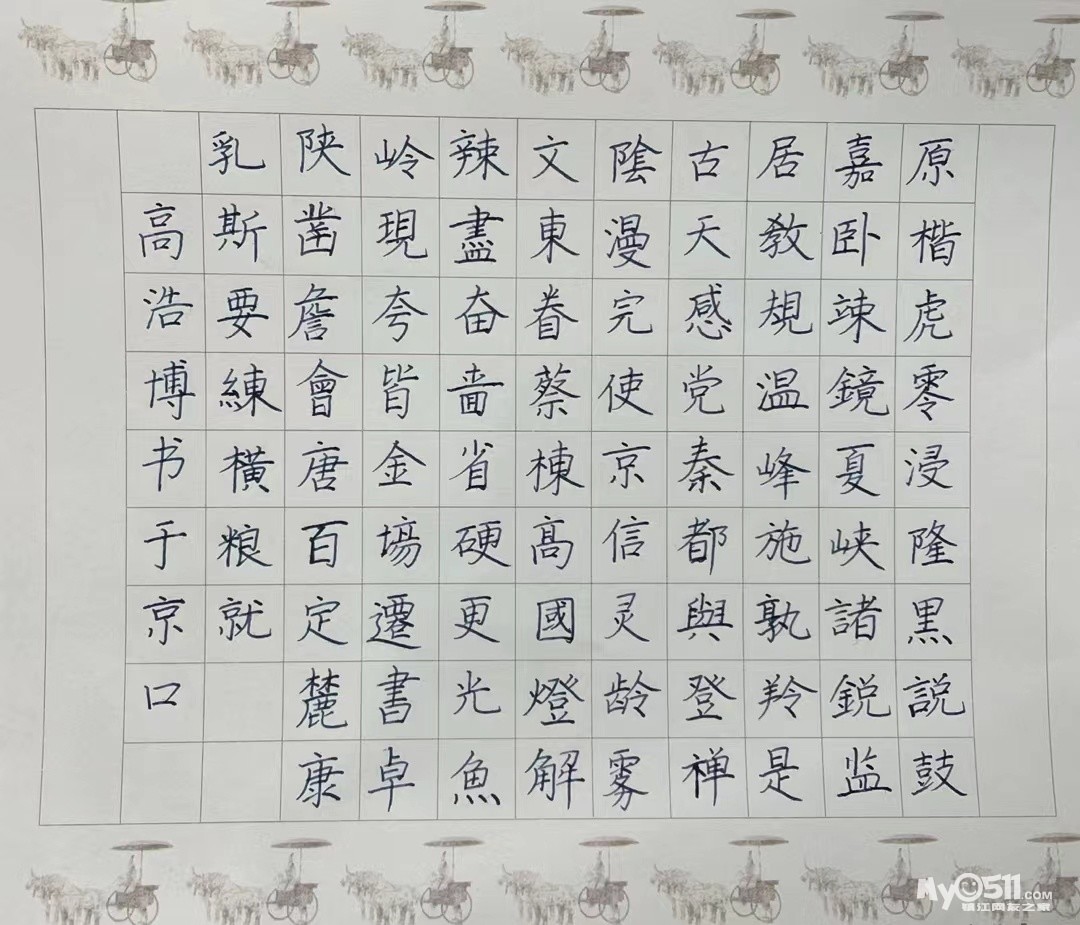 原楷虎零浸隆黒説鼓
嘉卧竦鏡夏峡諸鋭监
居教規温峰施孰羚是
古天感党秦都與登禅
陰漫完使京信灵龄雾
文東眷蔡棟高國燈解
辣盡奋啬省硬更光魚
岭現夸皆金場遷書卓
陕凿詹會唐百定麓康
乳斯要練横粮就
高浩博书于京口
MyO511.COM
镇江网友之家